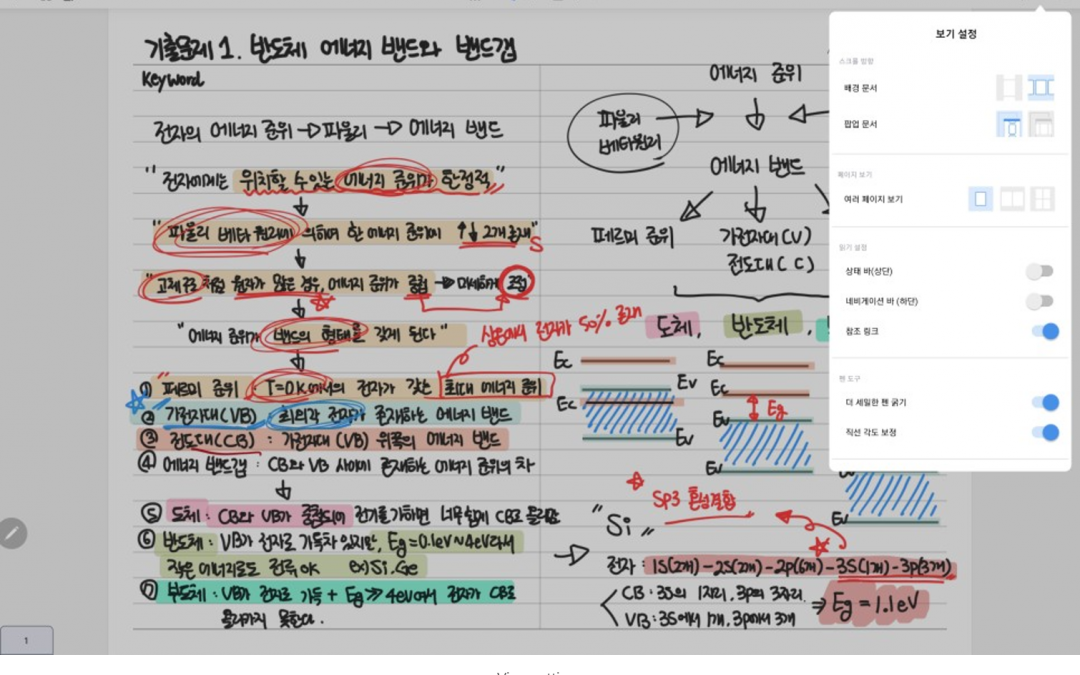 기출문제 1. 반도체 에너지 밴드와 밴드갭
Keyword
전자의 에너지 준위 → 파울리 → 에너지 밴드
"전자에게는 위치할 수 있는 에너지 준위가 한정적"
↓
"파울리 베타 원리에 의하여 한 에너지 준위에 ↑↓ 2개 존재"
↓
"고체구조처럼 원자가 많은 경우, 에너지 준위가 중첩 → 미세하게 조정
↓
"에너지 준위가 밴드의 형태를 갖게 된다"
↓
상온에서 전자가 50% 존재
① 페르미 준위 : T=0K에서의 전자가 갖는 최대 에너지 준위
② 가전자대(VB) : 최외각 전자가 존재하는 에너지 밴드
③ 전도대(CB) : 가전자대(VB) 위쪽의 에너지 밴드
④ 에너지 밴드갭 : CB와 VB 사이에 존재하는 에너지 준위의 차
↓
⑤ 도체 : CB와 VB가 중첩되어 전기를 가하면 너무 쉽게 CB로 올라감
⑥ 반도체 : VB가 전자로 가득차 있지만, Eg=0.1eV~4eV라서
작은 에너지로도 전류 OK ex) Si, Ge
⑦ 부도체 : VB가 전자로 가득 + Eg≫4eV여서 전자가 CB로
올라가지 못한다.
에너지 준위
파울리
베타원리
에너지 밴드
페르미 준위
가전자대(V)
전도대(C)
도체, 반도체,
Ec
Ev
Ec
Ev
Ec
Ec
Eg
Ev
Ev
Ev
SP3 혼성결합
"Si"
전자 : 1S(2개)-2S(2개)-2p(6개)-3S(1개)-3p(3개)
CB : 3S의 1자리, 3p의 3자리
VB : 3S에서 1개, 3p에서 3개
⇒ Eg=1.1eV
보기 설정
스크롤 방향
배경 문서
팝업 문서
페이지 보기
여러 페이지 보기
읽기 설정
상태 바(상단)
네비게이션 바 (하단)
참조 링크
펜 도구
더 세밀한 펜 굵기
직선 각도 보정
1